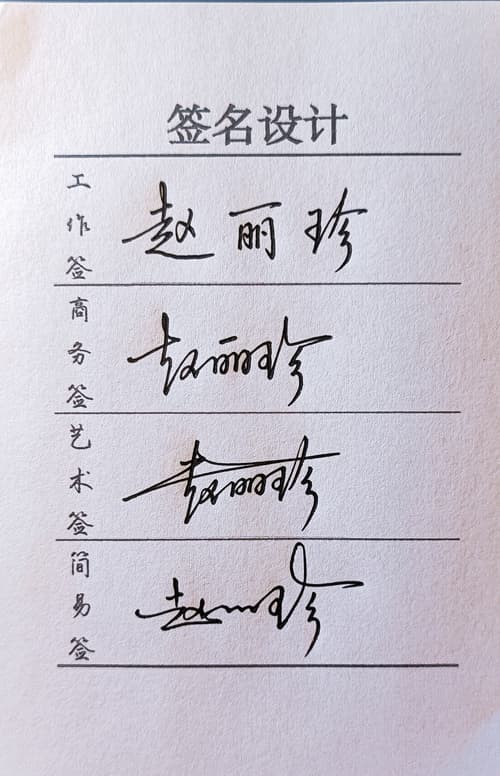 签名设计
工作签
赵丽珍
商务签
赵丽珍
艺术签
赵丽珍
简易签
赵丽珍